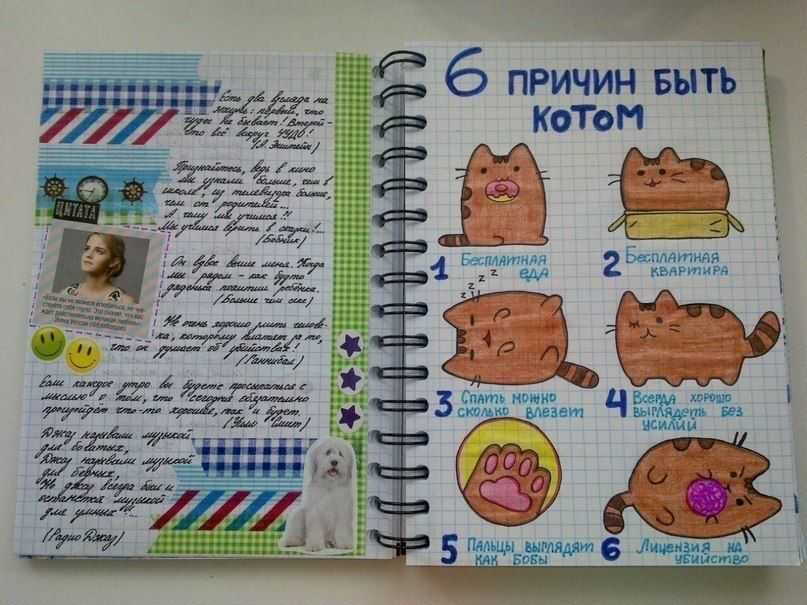 Есть два взгляда на
жизнь: первый, что
чудес не бывает! Второй -
что всё вокруг ЧУДО!
(А. Эйнштейн)
Признайтесь, ведь в кино
мы узнали больше, чем в
школе, из телевизора больше,
чем от родителей...
А чему мы учимся?!
Мы учимся верить в сказки!...
(Бобник)
ЦИТАТА
Он вдвое выше меня. Когда
мы рядом - как будто
дяденька похитил ребёнка.
(Больше чем секс)
Не очень хорошо злить челове-
ка, которому платят за то,
что он думает об убийствах!
(Ганнибал)
Если каждое утро вы будете просыпаться с
мыслью о том, что сегодня обязательно
произойдёт что-то хорошее, так и будет.
(Уилл Смит)
Джаз называли музыкой
для богатых,
Джаз называли музыкой
для бедных.
Но джаз всегда был и
останется музыкой
для умных!...
(Радио Джаз)
6 ПРИЧИН БЫТЬ
КОТОМ
1 БЕСПЛАТНАЯ
ЕДА
2 БЕСПЛАТНАЯ
КВАРТИРА
z z z
3 СПАТЬ МОЖНО
СКОЛЬКО ВЛЕЗЕТ
4 ВСЕГДА ХОРОШО
ВЫГЛЯДЕТЬ БЕЗ
УСИЛИЙ
5 ПАЛЬЦЫ ВЫГЛЯДЯТ
КАК БОБЫ
6 ЛИЦЕНЗИЯ НА
УБИЙСТВО